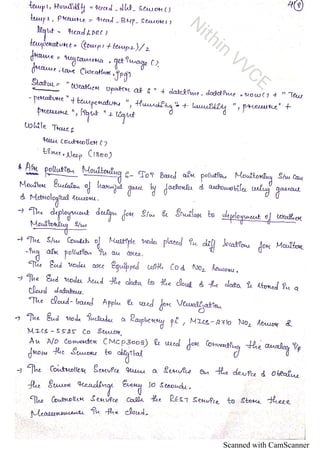 4(8)
temp1, Humidity = read_dht_sensor()
temp2, Pressure = read_BMP_sensor()
light = readLDR()
temperature = (temp1 + temp2)/2
frame = mycamera.getImage();
frame.save (weather.jpg)
Status = "Weather Update at :" + datetime.datetime.now() + "Tem
- perature" + temperature ", Humidity" + humidity ", pressure" +
pressure ", light" + light
While True:
run controller()
time.sleep (1800)
* Air pollution Monitoring :- IOT Based air pollution Monitoring S/m can
Monitor Emission of harmful gases by factories & automobiles using gaseous
& Metrological sensors.
→ The deployment design for S/m is similar to deployment of weather
Monitoring S/m
→ The S/m Consists of Multiple nodes placed in diff location for Monitor
-ing air pollution in an area.
The End nodes are Equipped with CO & NO2 Sensors.
→ The End nodes send the data to the cloud & the data is stored in a
Cloud database.
The cloud-based Appln is used for Visualization.
→ The End node includes a Raspberry pi, MICS-2710 NO2 sensor &
MICS-5525 CO sensor,
An A/D Converter (MCP3008) is used for converting the analog i/p
from the Sensors to digital
→ The Controller Service runs as Service on the device & obtains
the Sensor readings Every 10 seconds.
The Controller Service calls the REST Service to store these
Measurements in the cloud.
Nithin VVCE
Scanned with CamScanner